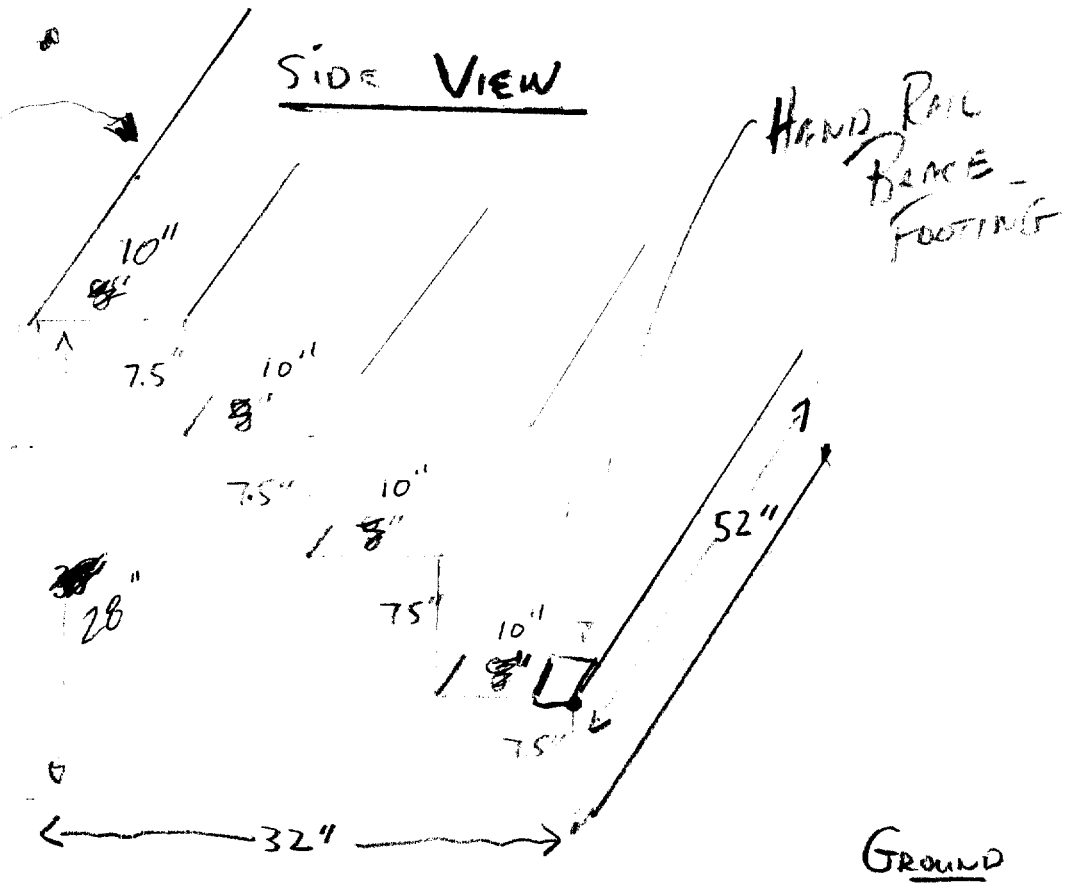 SIDE VIEW
HAND RAIL
BRACE -
FOOTING
10"
7.5"
10"
7.5"
10"
52"
28"
7.5"
10"
7.5"
32"
GROUND